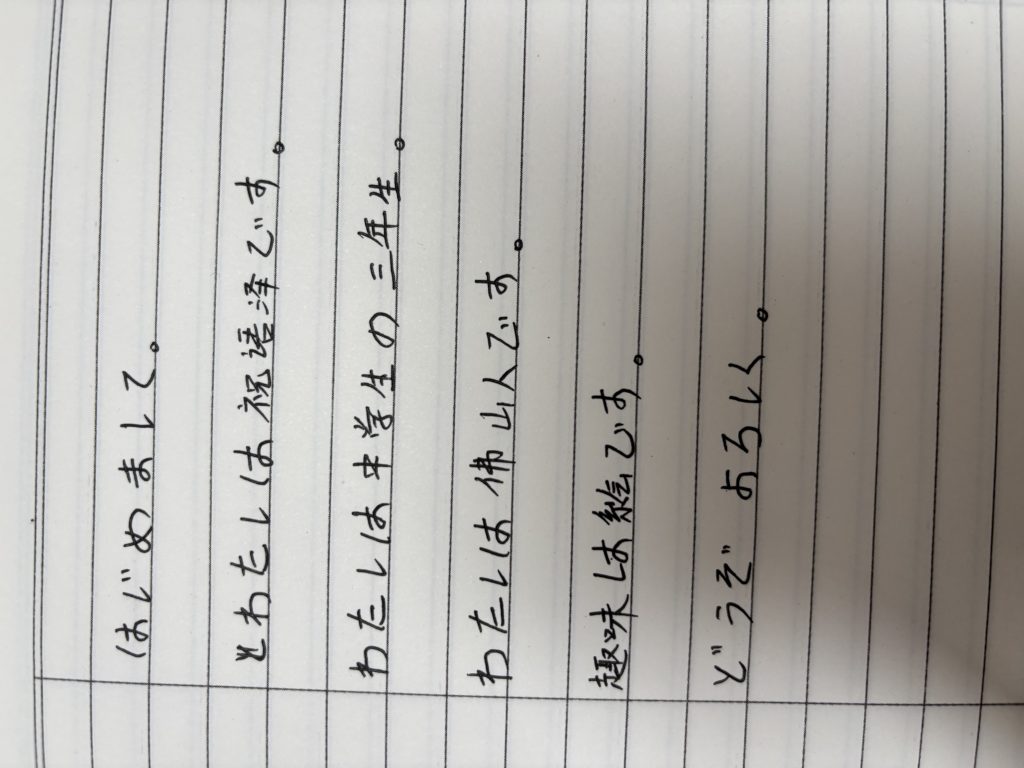 はじめまして。
とわたしは祝语泽です。
わたしは中学生の三年生。
わたしは佛山人です。
趣味しは絵です。
どうぞよろしく。